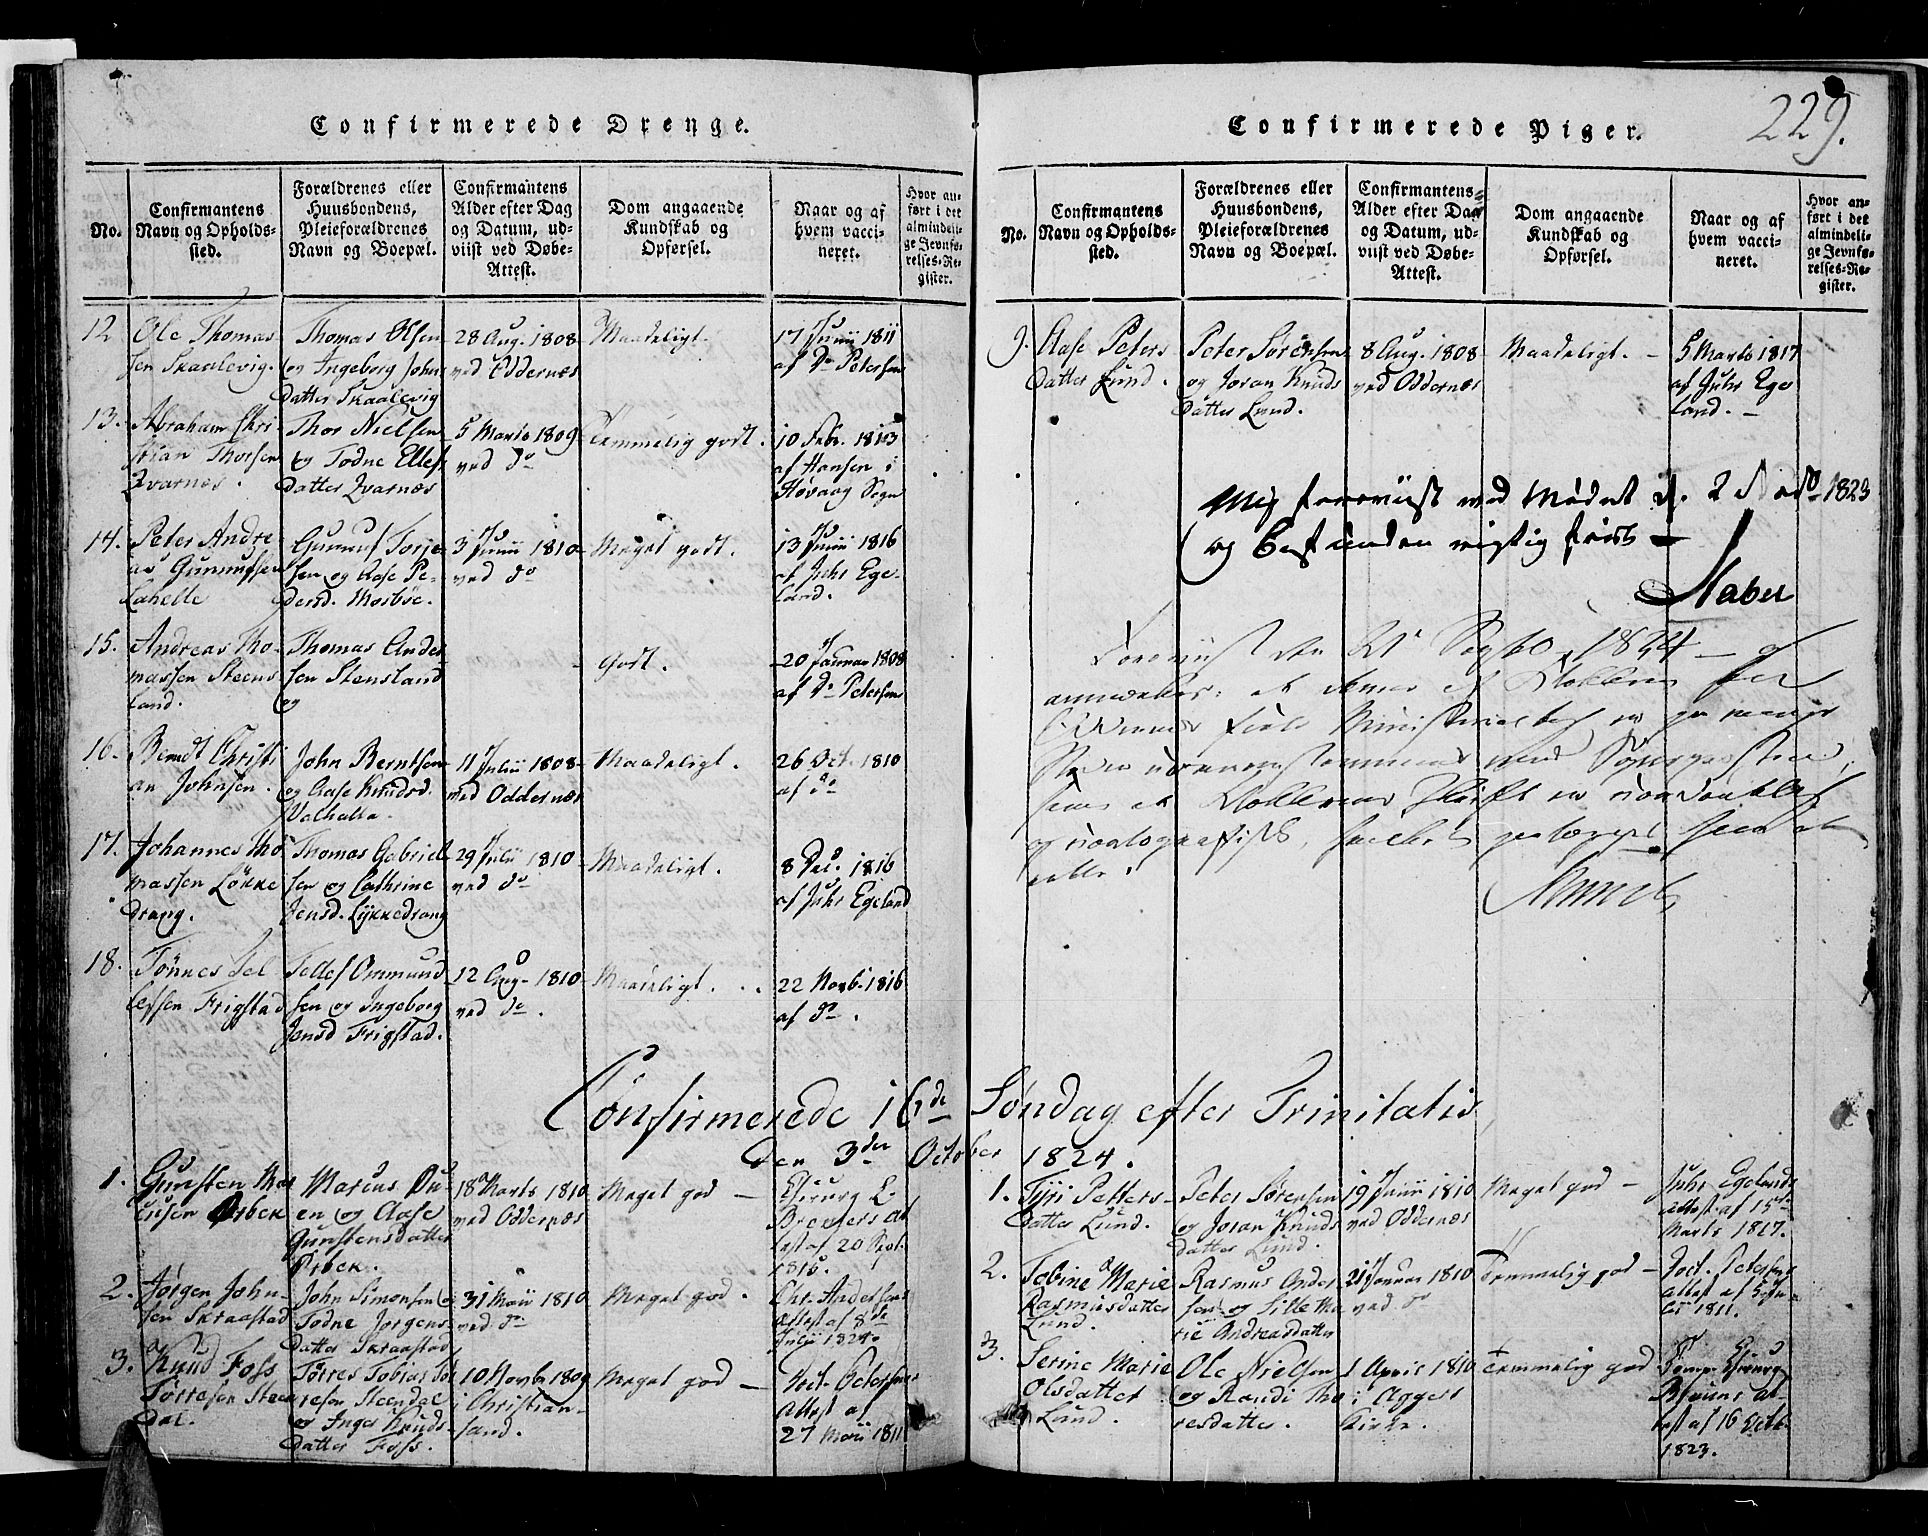 Confirmerede Drenge.
No.
Confirmantens
Navn og Opholds-
sted.
Forældrenes eller
Huusbondens,
Pleieforældrenes
Navn og Boepæl.
Confirmantens
Alder efter Dag
og Datum, ud-
viist ved Døbe-
Attest.
Dom angaaende
Kundskab og
Opførsel.
Naar og af
hvem vacci-
neret.
Hvor an-
ført i det
almindeli-
ge Jevnfø-
relses-Re-
gister.
12
Ole Thomas
sen Skaalevig.
Thomas Olsen
og Ingeborg John
datter Skaalevig
28 Aug. 1808
ved Oddernæs
Maadeligt.
17 Junii 1811
af Dr Petersen
13.
Abraham Chri-
stian Thorsen
Qvarnes.
Thor Nielsen
og Todne Ellef
datter Qvarnes
5 Marts 1809
ved do
Temmelig godt.
10 Febr. 1813
af Hansen i
Høvaag Sogn
14.
Peter Andre
as Gunnufsen
Lahelle
Gunnuf Torje
sen og Aase Pe-
dersd. Mosbøe.
3 Junii 1810
ved do
Meget godt.
13 Junii 1816
af Juhr Ege-
land.
15.
Andreas Tho-
massen Steens
land.
Thomas Ander
sen Stensland
og
Godt.
20 Januar 1808
af Dr Petersen
16.
Berndt Christi
an Johnsen.
John Berntsen
og Aase Knudsd.
Valhalla.
11 Julii 1808
ved Oddernæs
Maadeligt.
26 Oct. 1810
af do
17.
Johannes Tho
massen Løkke
drang.
Thomas Gabriel
sen og Cathrine
Jensd. Lykkedrang
29 Julii 1810
ved do
Maadeligt.
8 Dec. 1816
af Juhr Egeland
18.
Tønnes Tel
lefsen Frigstad
Tellef Ommund
sen og Ingeborg
Jensd Frigstad.
12 Aug. 1810
ved do.
Maadeligt.
22 Novb. 1816
af do.
Confirmerede 16de Søndag efter Trinitatis
den 3die October 1824.
1.
Gunsten Mar
iusen Østbek
Marius Du
en og Aase
Gunstensdatter
Østbek.
18 Marts 1810
ved Oddernæs
Meget god
Chirurg
At
test af 20 Sept.
1816.
2.
Jørgen John-
sen Skraastad
John Simonsen og
Todne Jorgens
datter Skraastad
31 Maii 1810
ved do
Meget god.
Chr. Andersens
Attest af 8de
Julii 1824.
3.
Knud Foss
Tørresen Steen
dal.
Tørres Tobias Tør
resen Steendal
og Inger Knuds
datter Foss.
10 Novbr 1809
i Christian-
sand.
Meget god
Doct. Petersens
Attest af
27 Maii 1811
Confirmerede Piger.
229.
No.
Confirmantens
Navn og Opholds-
sted.
Forældrenes eller
Huusbondens,
Pleieforældrenes
Navn og Boepæl.
Confirmantens
Alder efter Dag
og Datum, ud-
viist ved Døbe-
Attest.
Dom angaaende
Kundskab og
Opførsel.
Naar og af
hvem vacci-
neret.
Hvor an-
ført i det
almindeli-
ge Jevnfø-
relses-Re-
gister.
9.
Aase Peters
datter Lund.
Peter Sørensen
og Joran Knuds
datter Lund.
8 Aug. 1808
ved Oddernæs
Maadeligt.
5 Marts 1817
af Juhr Ege
land.
Mig foreviist ved Mødet d. 1823
og befunden rigtig ført
Foreviist den Septbr 1824
1.
Tyri Petters-
datter Lund.
Peter Sørensen
og Joran Knuds
datter Lund.
19 Junii 1810
ved Oddernæs
Meget god
Juhr Egelands
attest af 15de
Marts 1817.
2.
Tobine Marie
Rasmusdatter
Lund.
Rasmus Ander
sen og Sille Ma
rie Andreasdatter
21 Januar 1810
ved do
Temmelig god
Doct. Petersens
attest af
1811.
3.
Serine Marie
Olsdatter
Lund.
Ole Nielsen
og Randi Tho
resdatter.
1 April 1810
i Agger
Kirke.
Temmelig god
Chirurg
Bruuns at-
test af 16 Octb.
1823.